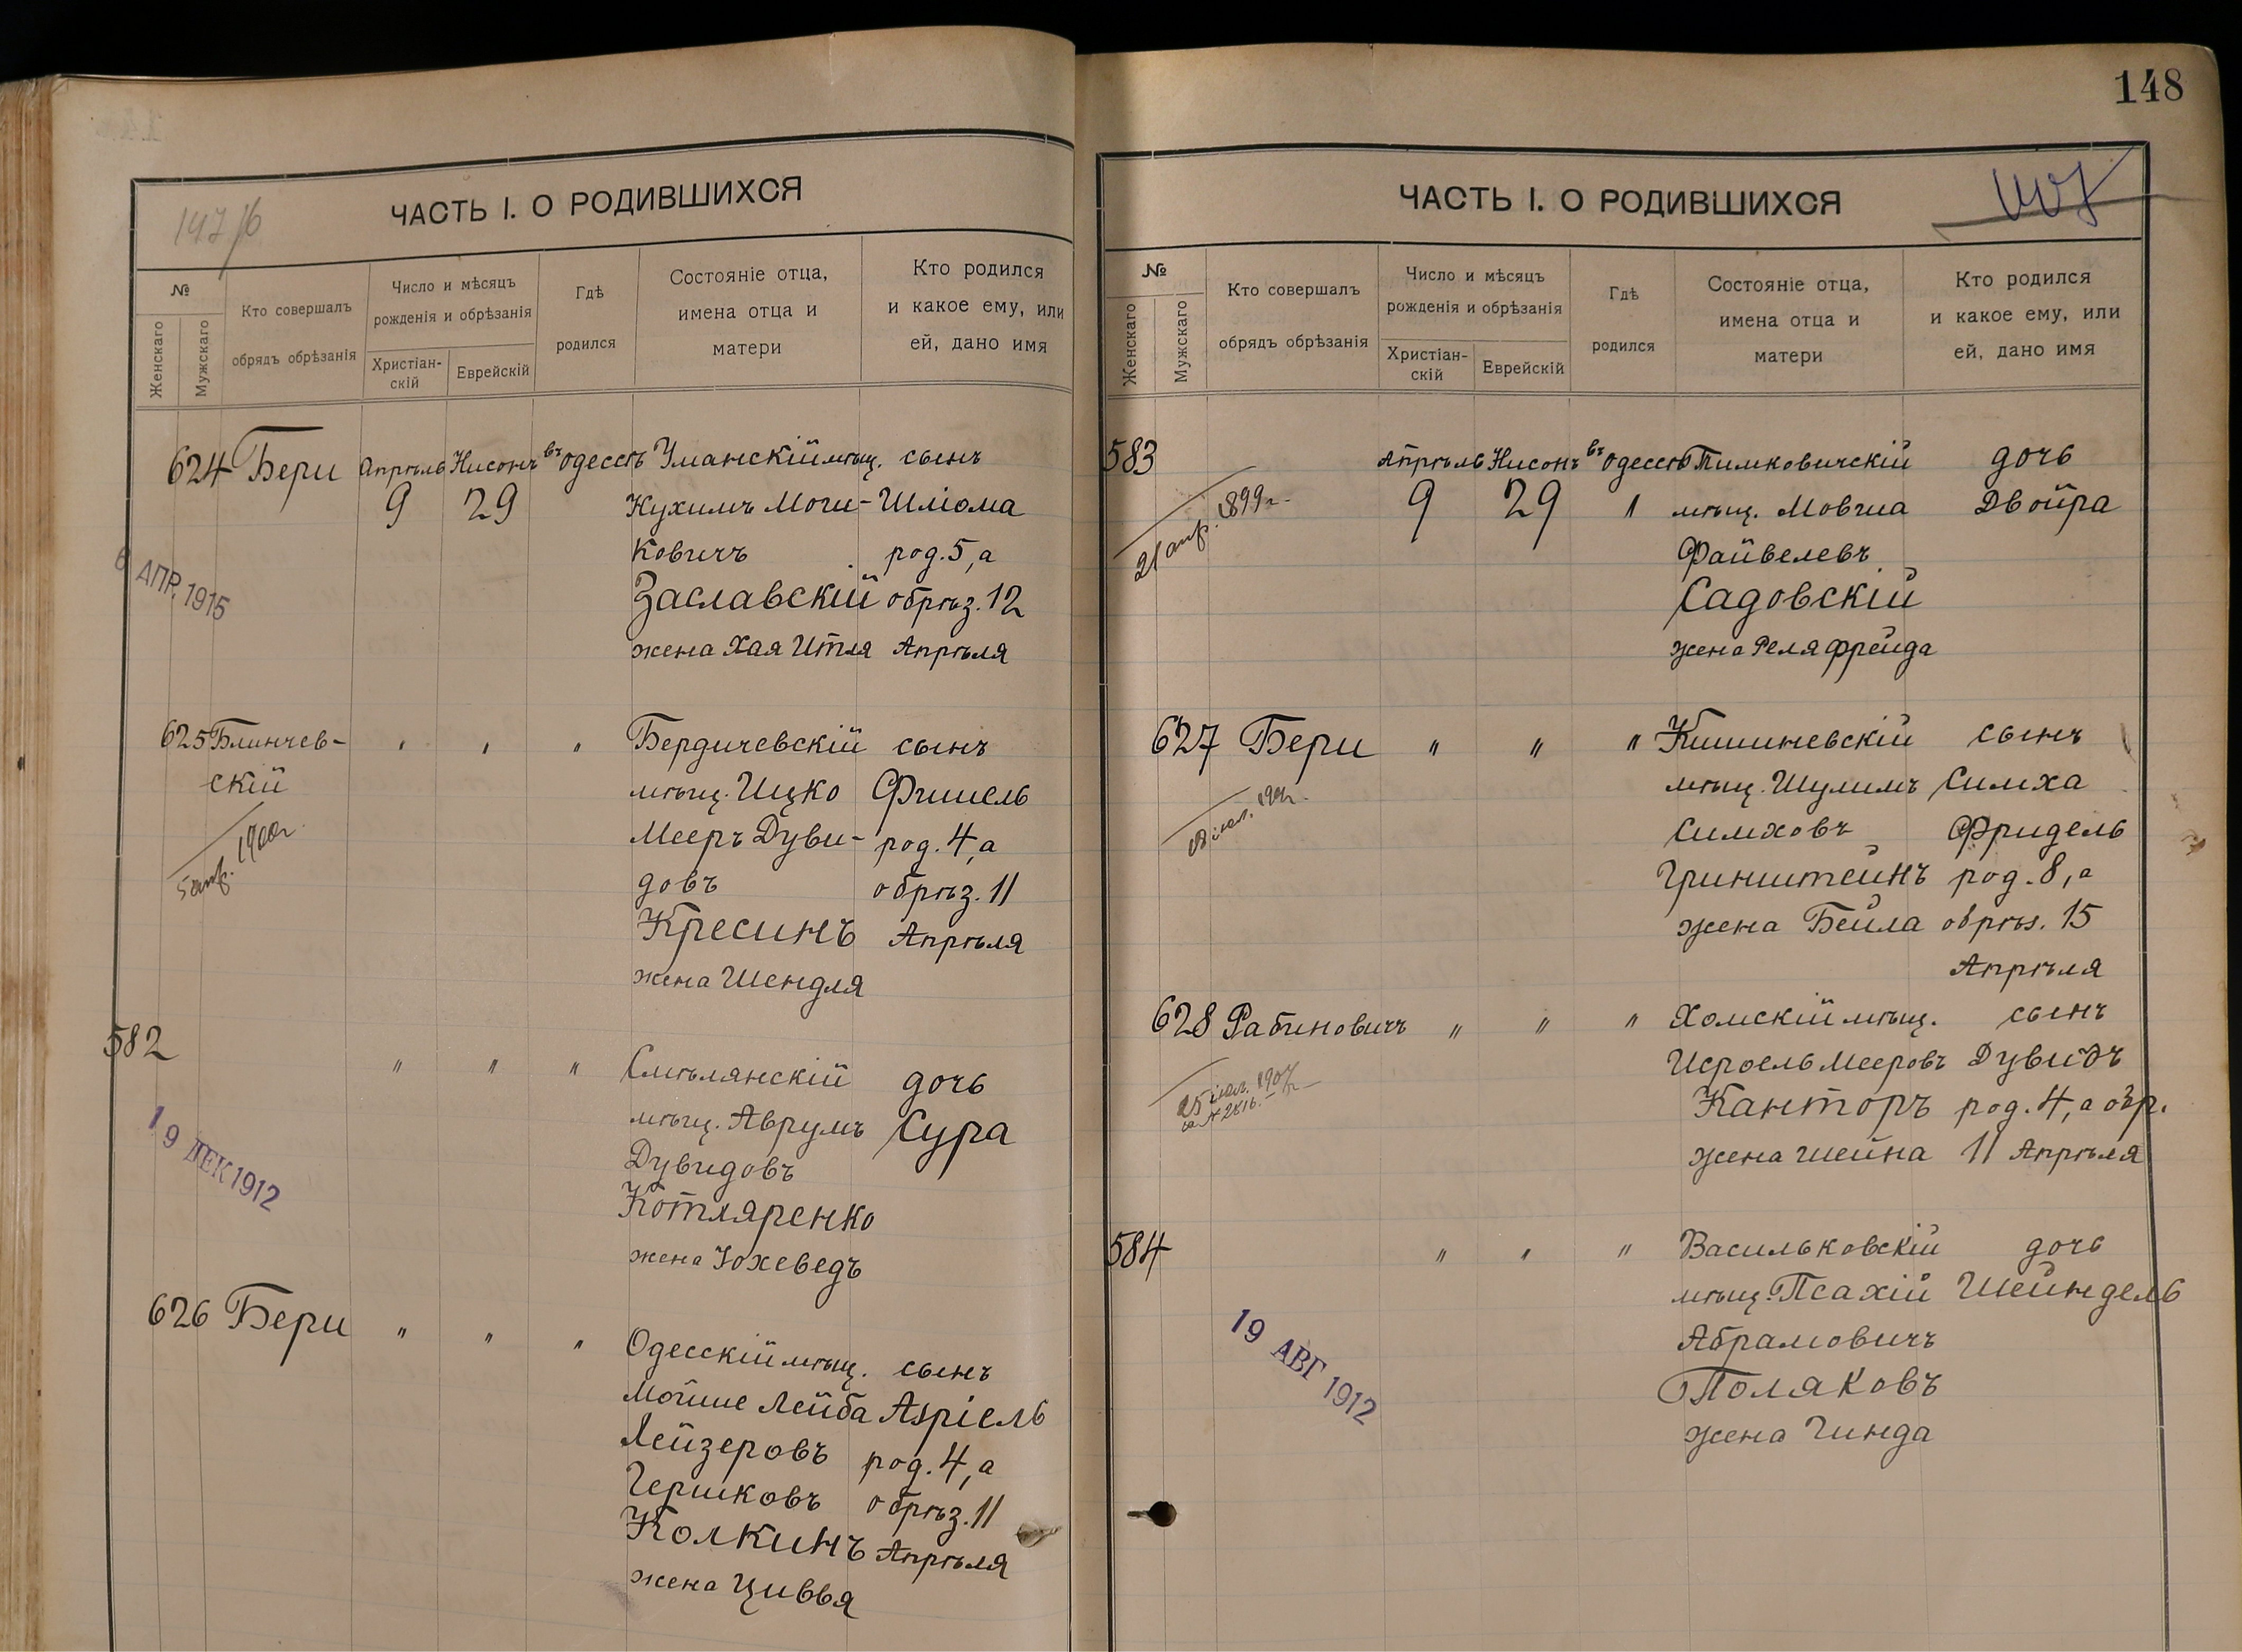 148
ЧАСТЬ I. О РОДИВШИХСЯ
№
Женскаго
Мужскаго
Кто совершалъ
обрядъ обрѣзанія
Число и мѣсяцъ
рожденія и обрѣзанія
Христіан-
скій
Еврейскій
Гдѣ
родился
Состояніе отца,
имена отца и
матери
Кто родился
и какое ему, или
ей, дано имя
624 Бери Апрѣль Нисонъ въ Одессѣ Уманскій мѣщ. сынъ
9 29 Нухимъ Моги- Шлiома
ковичъ род. 5, а
6 АПР. 1915
Заславскій обрѣз. 12
жена Хая Итля Апрѣля
625 Блинчев- " " " Бердичевскій сынъ
скій мѣщ. Ицко Фишель
5 апр. 1900г.
Мееръ Дуви- род. 4, а
довъ обрѣз. 11
Кресинъ Апрѣля
жена Шендля
582 " " " Смѣлянскій дочь
мѣщ. Аврумъ Сура
19 ДЕК 1912
Дувидовъ
Котляренко
жена Іохеведъ
626 Бери " " " Одесскій мѣщ. сынъ
Мойше Лейба Азріель
Лейзеровъ род. 4, а
Гершковъ обрѣз. 11
Колкинъ Апрѣля
жена Цивья
ЧАСТЬ I. О РОДИВШИХСЯ
№
Женскаго
Мужскаго
Кто совершалъ
обрядъ обрѣзанія
Число и мѣсяцъ
рожденія и обрѣзанія
Христіан-
скій
Еврейскій
Гдѣ
родился
Состояніе отца,
имена отца и
матери
Кто родился
и какое ему, или
ей, дано имя
583 Апрѣль Нисонъ въ Одессѣ Тимковичскій дочь
9 29 " мѣщ. Мовша Двойра
21 апр. 1899г.
Файвелевъ
Садовскій
жена Реля Фрейда
627 Бери " " " Кишиневскій сынъ
мѣщ. Шулимъ Симха
Симховъ Фридель
Гринштейнъ род. 8, а
жена Бейла обрѣз. 15
Апрѣля
628 Рабиновичъ " " " Хомскій мѣщ. сынъ
Исроель Мееровъ Дувидъ
Канторъ род. 4, а обр.
жена Шейна 11 Апрѣля
584 " " " Васильковскій дочь
мѣщ. Псахій Шейндель
19 АВГ 1912
Абрамовичъ
Поляковъ
жена Гинда